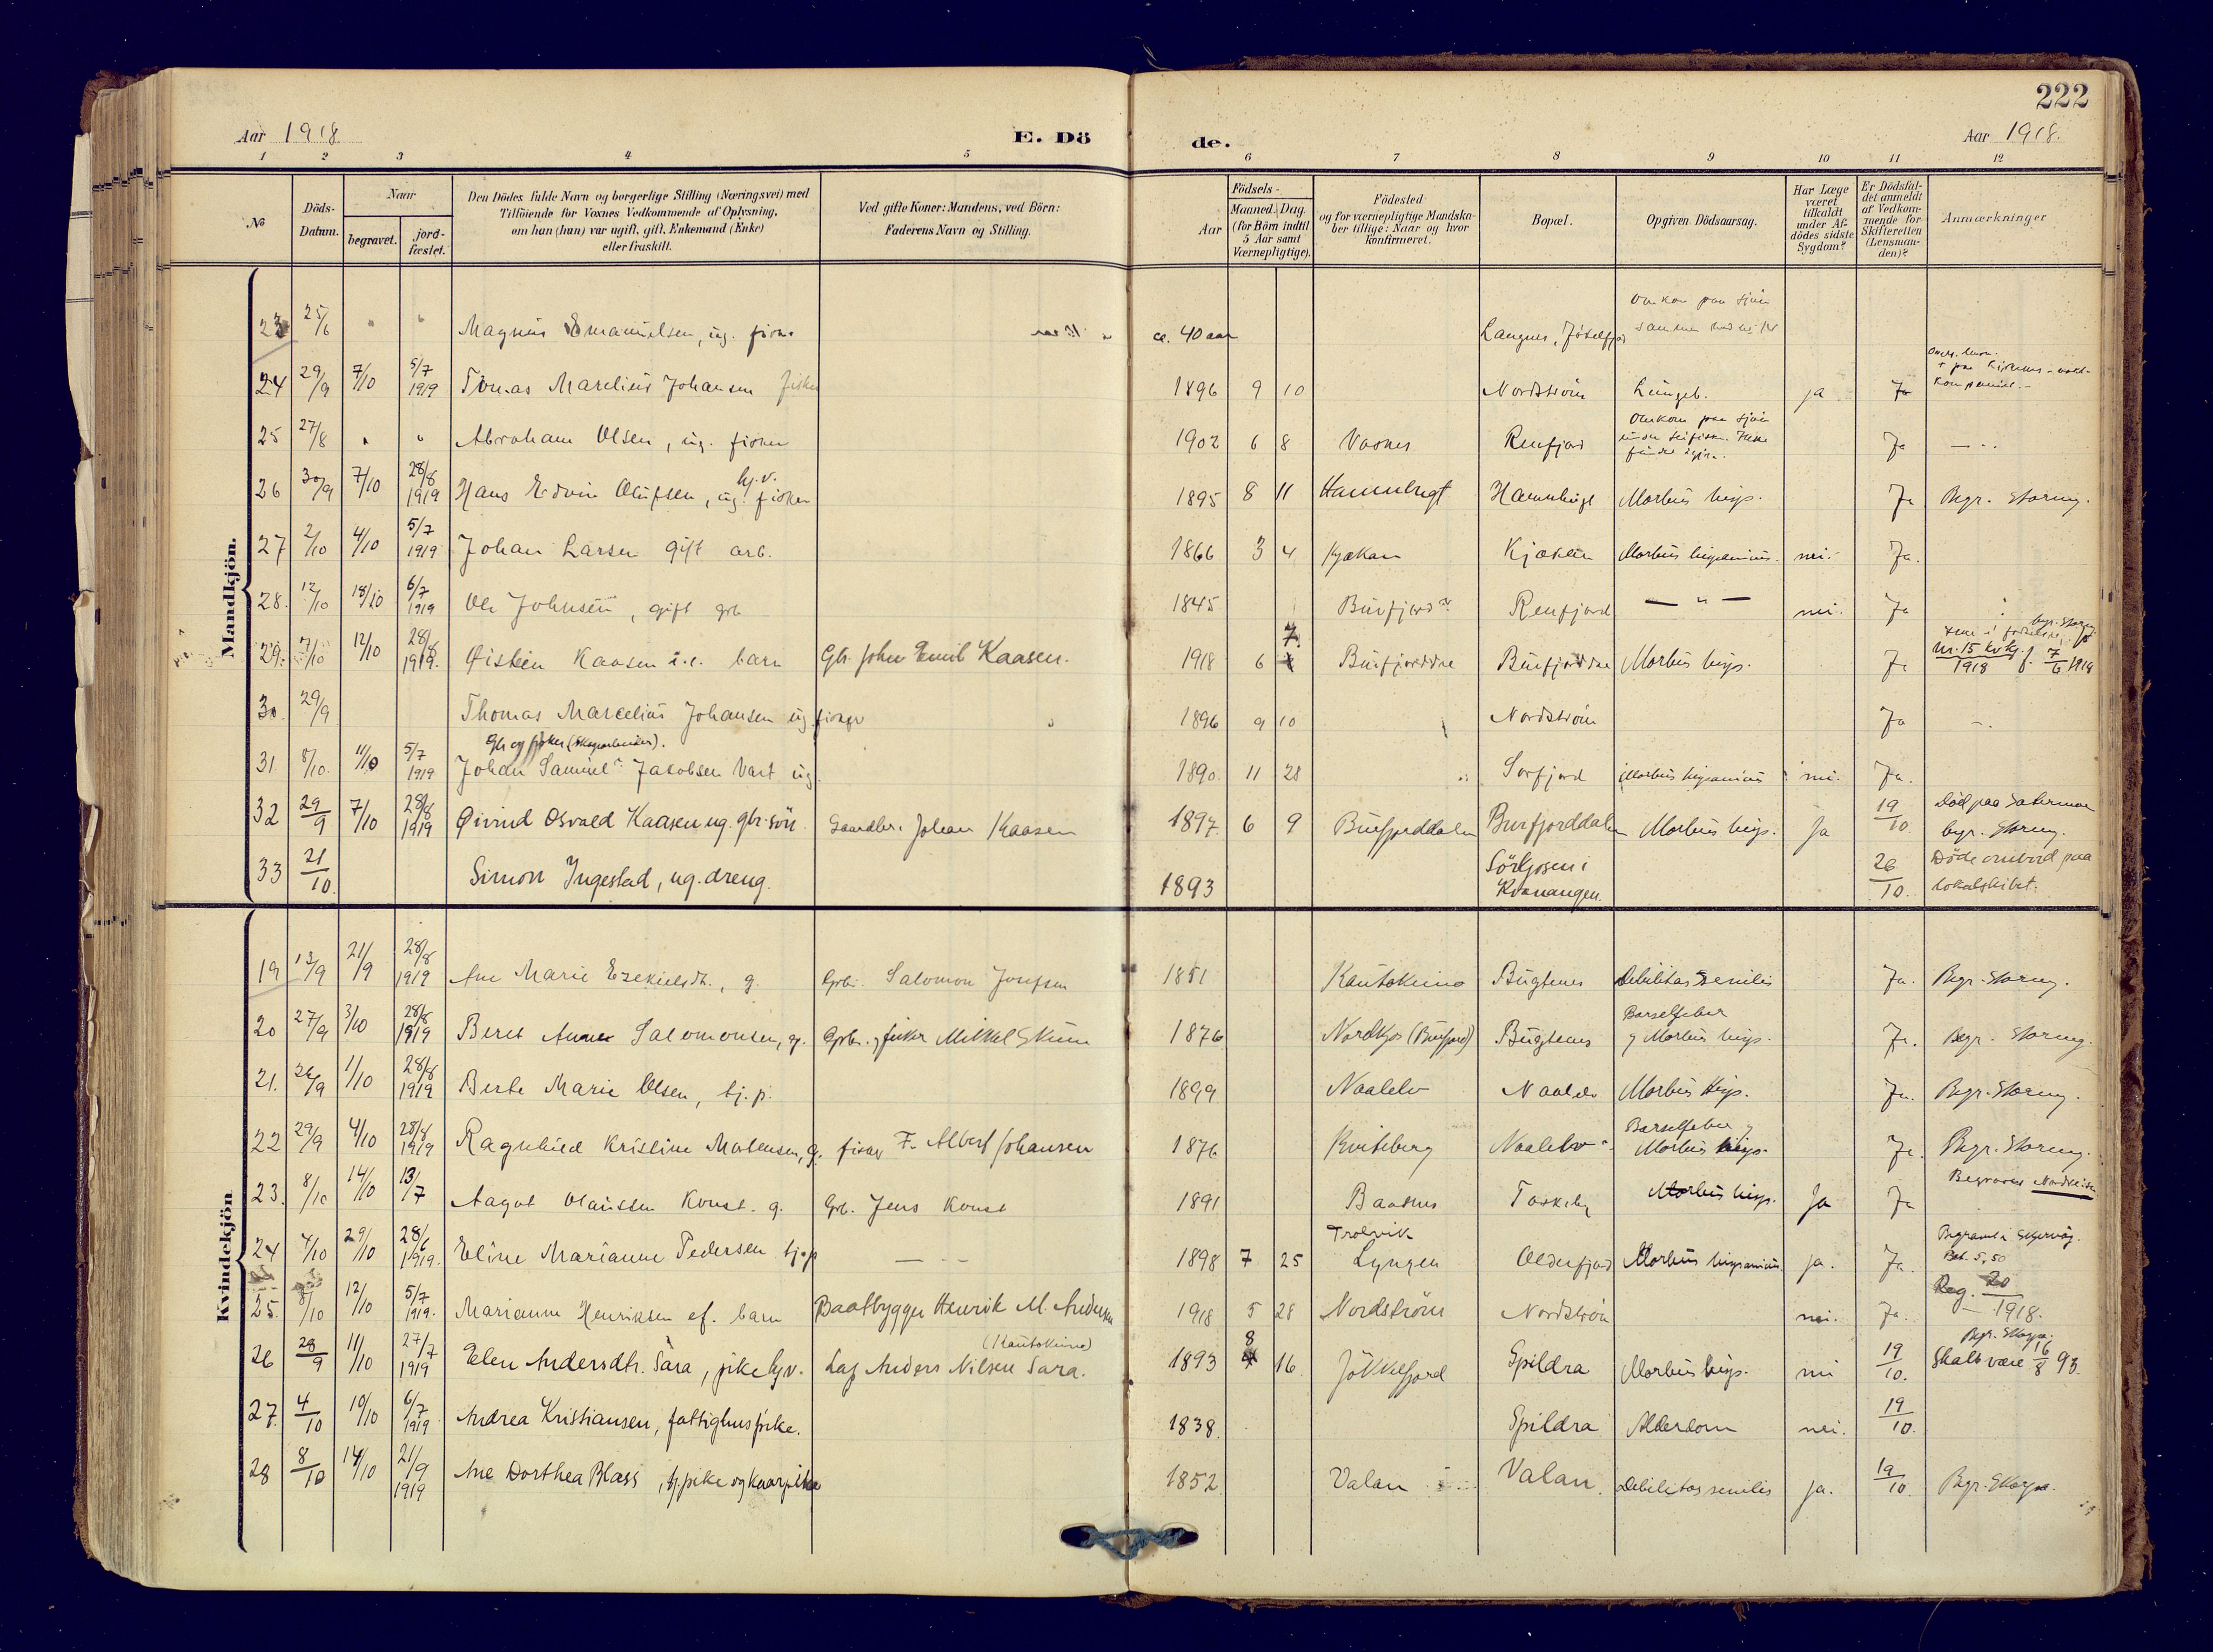 222
Aar 1918. E. Dö de. Aar 1918.
1 2 3 4 5 6 7 8 9 10 11 12
No
Döds-Datum.
Naar
begravet.
jord-fæstet.
Den Dödes fulde Navn og borgerlige Stilling (Næringsvei) med
Tilföiende for Voxnes Vedkommende af Oplysning,
om han (hun) var ugift, gift, Enkemand (Enke)
eller fraskilt.
Ved gifte Koner: Mandens, ved Börn:
Faderens Navn og Stilling.
Födsels-
Aar
Maaned. Dag.
(for Börn indtil
5 Aar samt
Værnepligtige).
Födested
og for værnepligtige Mandska-
ber tillige: Naar og hvor
konfirmeret.
Bopæl.
Opgiven Dödsaarsag.
Har Læge
været
tilkaldt
under Af-
dödes sidste
Sygdom?
Er Dödsfal-
det anmeldt
af Vedkom-
mende for
Skifteretten
(Lensman-
den)?
Anmærkninger
Mandkjön.
23 25/6 " " Magnus Emanuelsen, ug. fisker ca. 40 aar Langnes, Jökelfjord Omkom paa sjöen sammen med
24 29/9 7/10 5/7 1919 Tomas Marelius Johansen fisker 1896 9 10 Nordström Lungeb. ja Ja
25 27/8 " " Abraham Olsen, ug. fisker 1902 6 8 Vasnes Renfjord Omkom paa sjöen Ja — " -
26 30/9 7/10 28/8 1919 Hans Edvin Olufsen, ug. fisker hj.v. 1895 8 11 Hamnbugt Hamnbugt Morbus hisp. Ja Begr. Storeng.
27 2/10 4/10 5/7 1919 Johan Larsen gift arb. 1866 3 4 Kjækan Kjækan Morbus hispanicus. nei. Ja.
28. 12/10 18/10 6/7 1919 Ole Johnsen, gift grb 1845 Burfjord Renfjord — " — nei. Ja
29. 7/10 12/10 28/8 1919. Øistein Kaasen u.e. barn Gb. John Emil Kaasen. 1918 6 7 Burfjorddal Burfjorddal Morbus hisp. Ja begr. Storeng nr. 15 1918 f. 7/6 1918
30. 29/9 Thomas Marcelius Johansen ug. fisker 1896 9 10 Nordström Ja —
31. 8/10. 11/10 5/7 1919 Gbr og fisker (Skogarbeider). Johan Samuel Jakobsen Vart ug. 1890. 11 28 Sorfjord Morbus hispanicus nei. Ja.
32 29/9 7/10 28/8 1919 Øivind Osvald Kaasen ug. gbr.sön Gaardbr. Johan Kaasen 1897. 6 9 Burfjorddalen Burfjorddalen Morbus hisp. Ja 19/10. Död paa Satermoen begr. Storeng.
33 21/10. Simon Ingestad, ug. dreng. 1893 Sörkjosen i Kvænangen. 26/10. Döde ombord paa lokalskibet.
Kvindekjön.
19 13/9 21/9 28/8 1919 Ane Marie Ezekielsdt., g. Grbr. Salomon Josefsen 1851 Kautokeino Bugtenes Debilitas senilis Ja. Begr. Storeng.
20 27/9 3/10 28/8 1919 Beret Anne Salomonsen, g. Grbr. og fisker Mikkel Skum 1876 Nordkjos (Burfjord) Bugtenes Barselfeber og Morbus hisp. Ja. Begr. Storeng.
21. 26/9 1/10 28/8 1919 Berte Marie Olsen, tj.p. 1899 Naalelv Naalelv Morbus hisp. Ja. Begr. Storeng.
22 29/9 4/10 28/8 1919 Ragnhild Kristine Mortensen, g. fisker F. Albert Johansen 1876 Kviteberg Naalelv Barselfeber og Morbus hisp. Ja. Begr. Storeng.
23. 8/10 14/10 13/7 Aagot Olaussen Konst. g. Grb. Jens Konst 1891 Baatsnes Toskeby Morbus hisp. Ja Ja Begraves Nordreisa
24 4/10 29/10 28/6 1919. Eline Marianne Pedersen tj.p — " - 1898 7 25 Trolvik Lyngen Olderfjord Morbus hispanicus ja. Ja. Begravet i Skjervöy. Bet. 5,50
25. 8/10 12/10 5/7 1919. Marianne Henriksen ef. barn Baatbygger Henrik M. Andersen 1918 5 28 Nordström Nordström nei. Ja. Reg. 20/1918.
26 28/9 11/10 27/7 1919 Elen Andersdtr. Sara, pike hjv. Lap Anders Nilsen Sara. (Kautokeino) 1893 8 16 Jökkelfjord Spildra Morbus hisp. nei 19/10. Begr. Skorpa. Skalt være 16/8 93.
27. 4/10 10/10 6/7 1919 Andrea Kristiansen, fattighuspike. 1838. Spildra Alderdom nei. 19/10.
28 8/10 14/10 21/9 1919 Ane Dorthea Blass, tj.pike og kaarpike 1852. Valan Valan. Debilitas senilis ja. 19/10. Begr. Skorpa.